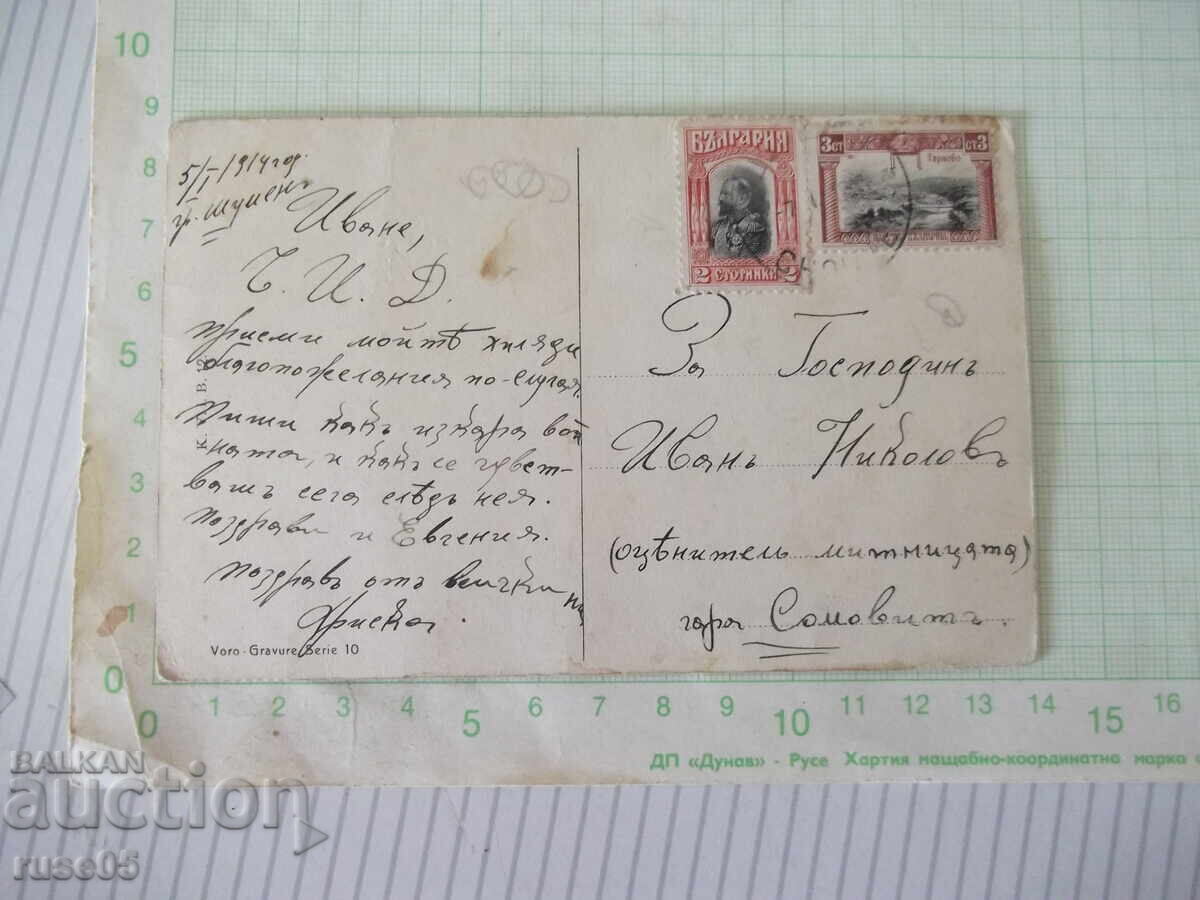 5/I 1914 год.
гр. Шуменъ
Иване,
Ч. И. Д.
Приеми мойтѣ хиляди
благопожелания по-случая.
Пиши какъ изкара вой
ната, и какъ се чувст-
вашъ сега слѣдъ нея.
Поздрави и Евгения.
Поздравъ отъ всички ни
Voro-Gravure Serie 10
БЪЛГАРИЯ
2 СТОТИНКИ 2
3 СТ СТ 3
Търново
За Господинъ
Иванъ Николовъ
(оцѣнитель митницата)
гара Сомовитъ.
10
9
8
7
6
5
4
3
2
1
0
0 1 2 3 4 5 6 7 8 9 10 11 12 13 14 15 16
ДП «Дунав» - Русе Хартия мащабно-координатна марка
BALKAN
auction
ruse05